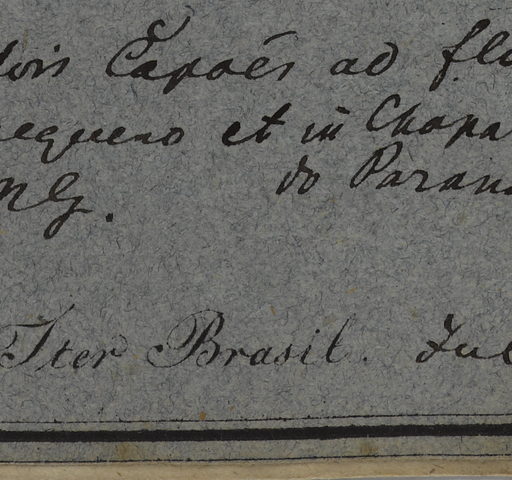 dois Capoës ad flu
equeno et in Chapa
MG. do Parana
Iter Brasil. Jul